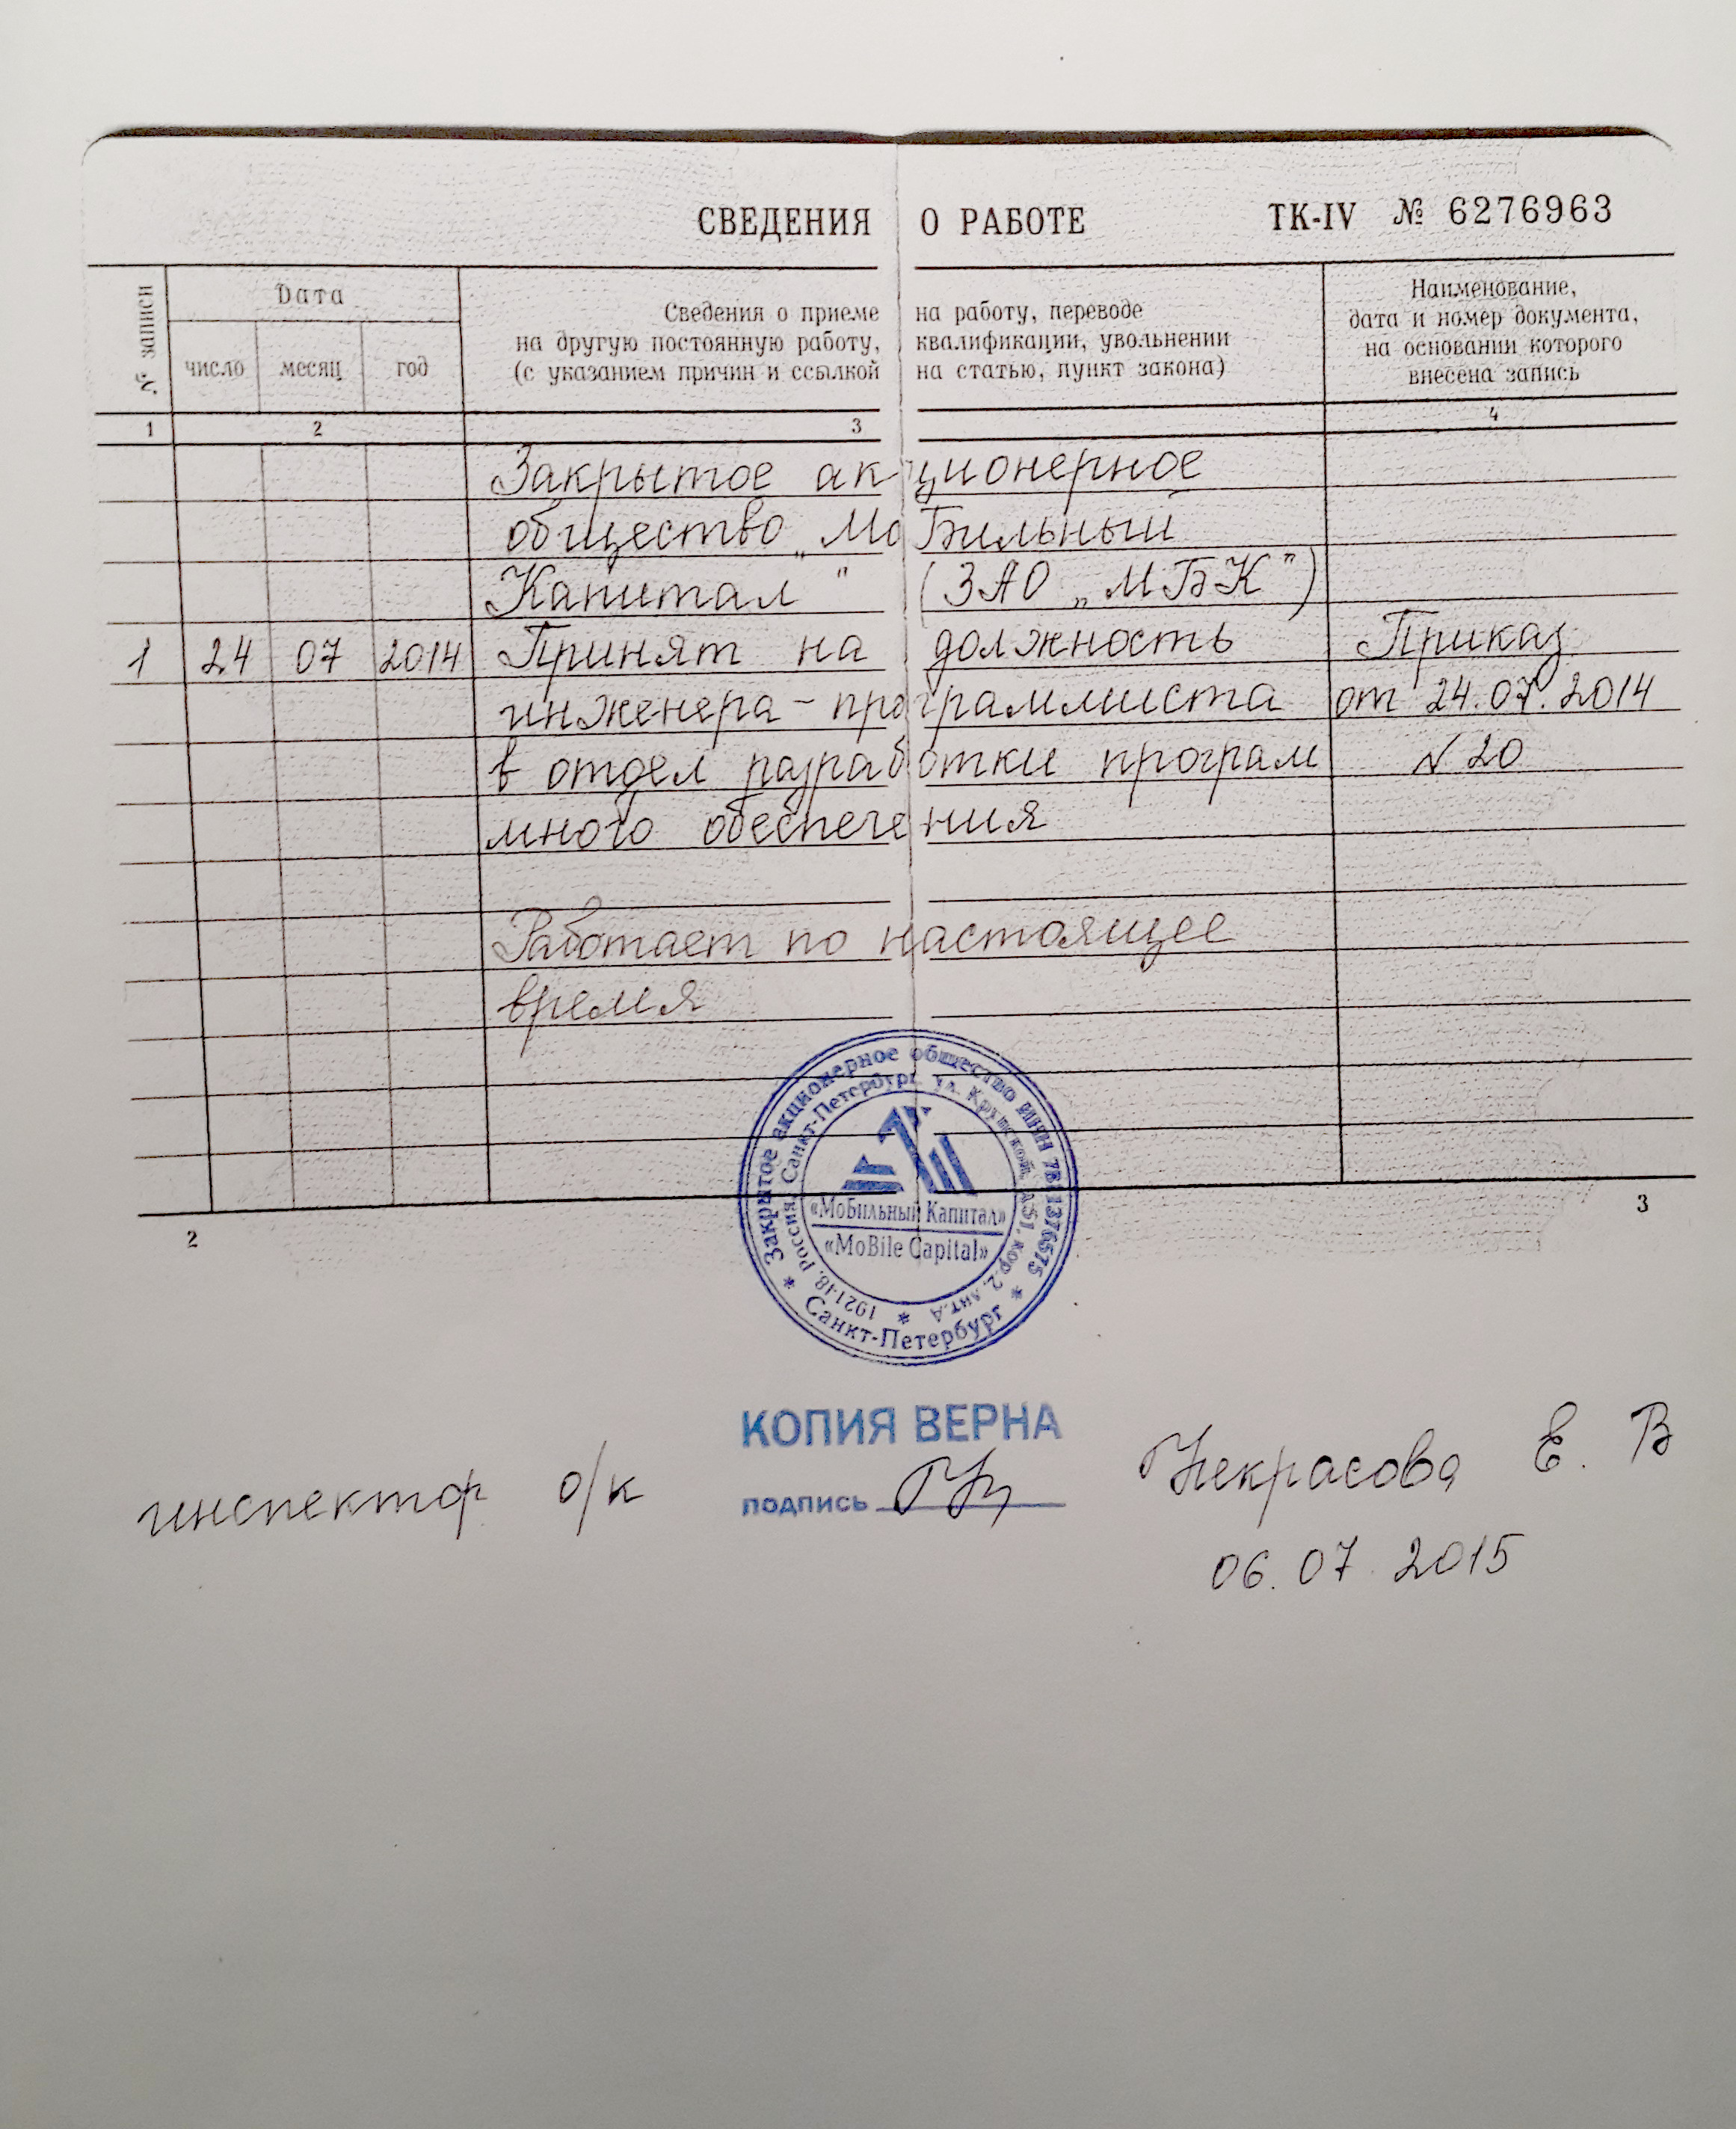 СВЕДЕНИЯ О РАБОТЕ ТК-IV № 6276963
№ записи
Дата
число месяц год
Сведения о приеме на работу, переводе
на другую постоянную работу, квалификации, увольнении
(с указанием причин и ссылкой на статью, пункт закона)
Наименование,
дата и номер документа,
на основании которого
внесена запись
1 2 3 4
Закрытое акционерное
общество „МоБильный
Капитал" (ЗАО „МБК")
1 24 07 2014 Принят на должность Приказ
инженера-программиста от 24.07.2014
в отдел разработки програм №20
много обеспечения
Работает по настоящее
время
2 3
* Закрытое акционерное общество ИНН *
Санкт-Петербург
192148, Россия, Санкт-Петербург, ул. д.51, кор.2, лит.А *
«МоБильный Капитал»
«MoBile Capital»
КОПИЯ ВЕРНА
инспектор о/к подпись Некрасова Е. В
06.07.2015